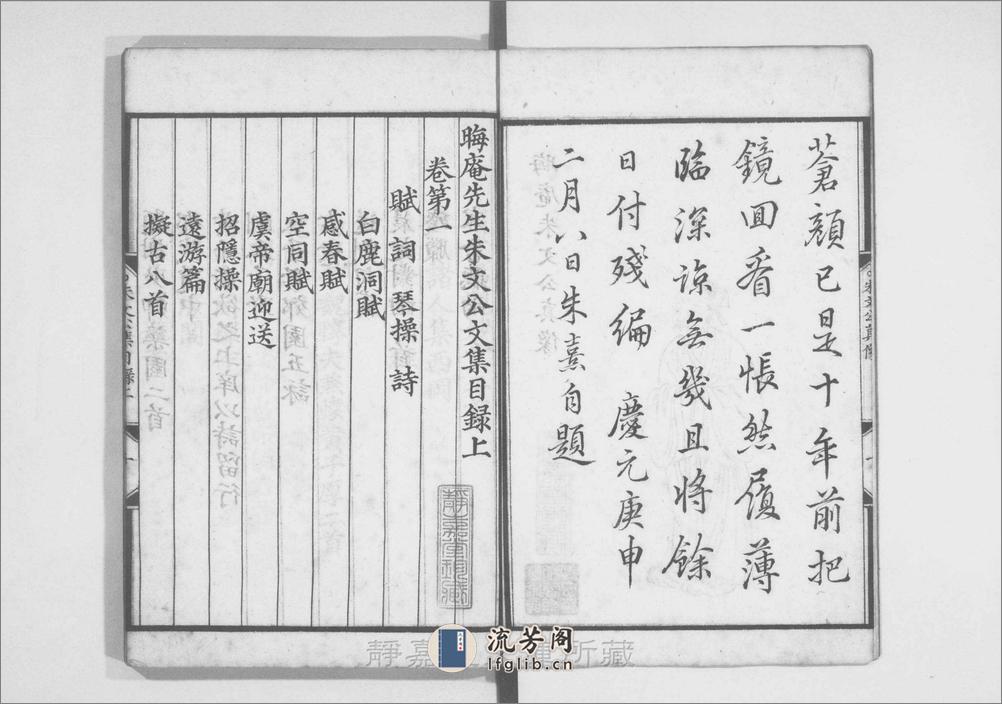 蒼顏已是十年前把
鏡回看一悵然履薄
臨深諒無幾且將餘
日付殘編　慶元庚申
二月八日朱熹自題
朱文公真像
晦庵先生朱文公文集目録上
卷第一
賦詞琴操詩
白鹿洞賦
感春賦
空同賦
虞帝廟迎送
招隱操
遠游篇
擬古八首
靜嘉堂珎藏
流芳阁
lfglib.cn
靜嘉 所藏